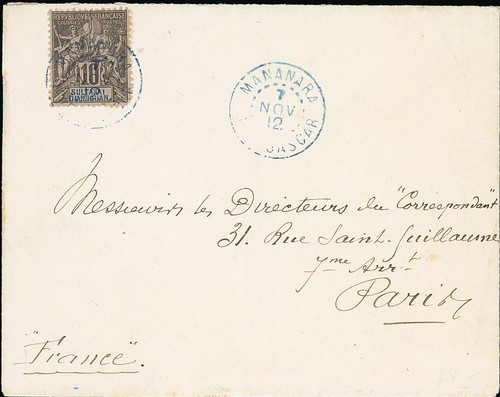 REPUBLIQUE FRANCAISE
COLONIES POSTES
10
SULTANAT
D'ANJOUAN
MANANARA
7
NOV
12
Messieurs les Directeurs du "Correspondant"
31. Rue Saint-Guillaume
7me Arrt
Paris
"France".